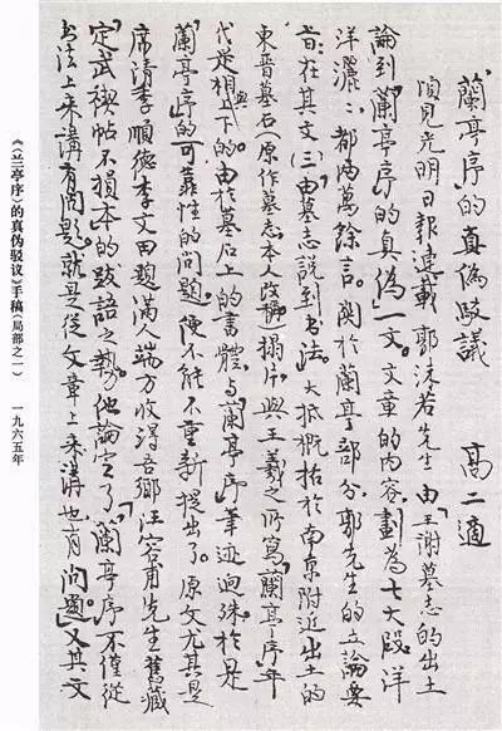 蘭亭序的真偽駁議　高二適
頃見光明日報連載郭沫若先生由「王謝墓志的出土
論到「蘭亭序」的真偽」一文。文章的内容，劃為七大段。洋
洋灑灑，都兩萬餘言。關於蘭亭部分，郭先生的立論要
旨：在其文(三)由「墓志説到書法。」大抵概括於南京附近出土的
東晉墓石(原作墓志，本人改稱)搨片，與王羲之所寫「蘭亭序」年
代是相與上下的。由於墓石上的書體，与「蘭亭序」筆迹迥殊。於是
「蘭亭序」的可靠性的問題。便不能不重新提出了。原文尤其是
席清季順德李文田題滿人端方收得吾鄉汪容甫先生舊藏
「定武禊帖不損本」的跋語之勢。他論定了，「蘭亭序不僅從
書法上來講有問題。就是從文章上來講也有問題」。又其文
《〈兰亭序〉的真伪驳议》手稿(局部之一)　一九六五年